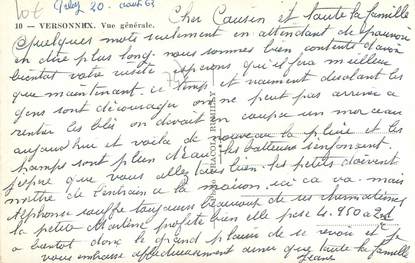 Lot
Prlay 20 août 63
10 — VERSONNEX. Vue générale.
Cher Cousin et toute la famille
Quelques mots seulement en attendant de pouvoir
en dire plus long. nous sommes bien contents d'avoir
bientot votre visite esperons qu'il fera meilleur
que maintenant. ce temps et vraiment desolant les
gens sont découragés on ne peut pas arriver a
rentrer les blés on devait en couper un morceau
aujourd'hui et voila de nouveau la pluie et les
champs sont plein d'eau les batteuses s'enfoncent.
J'espere que vous allez tous bien. les petits doivent
mettre de l'entrain a la maison. ici ca va. mais
Alphonse souffre toujours beaucoup de ses rhumatismes
la petite Martine profite bien elle pese 4.950 a 2m
a bientot donc le grand plaisir de se revoir et je
vous embrasse affectueusement ainsi que toute la famille